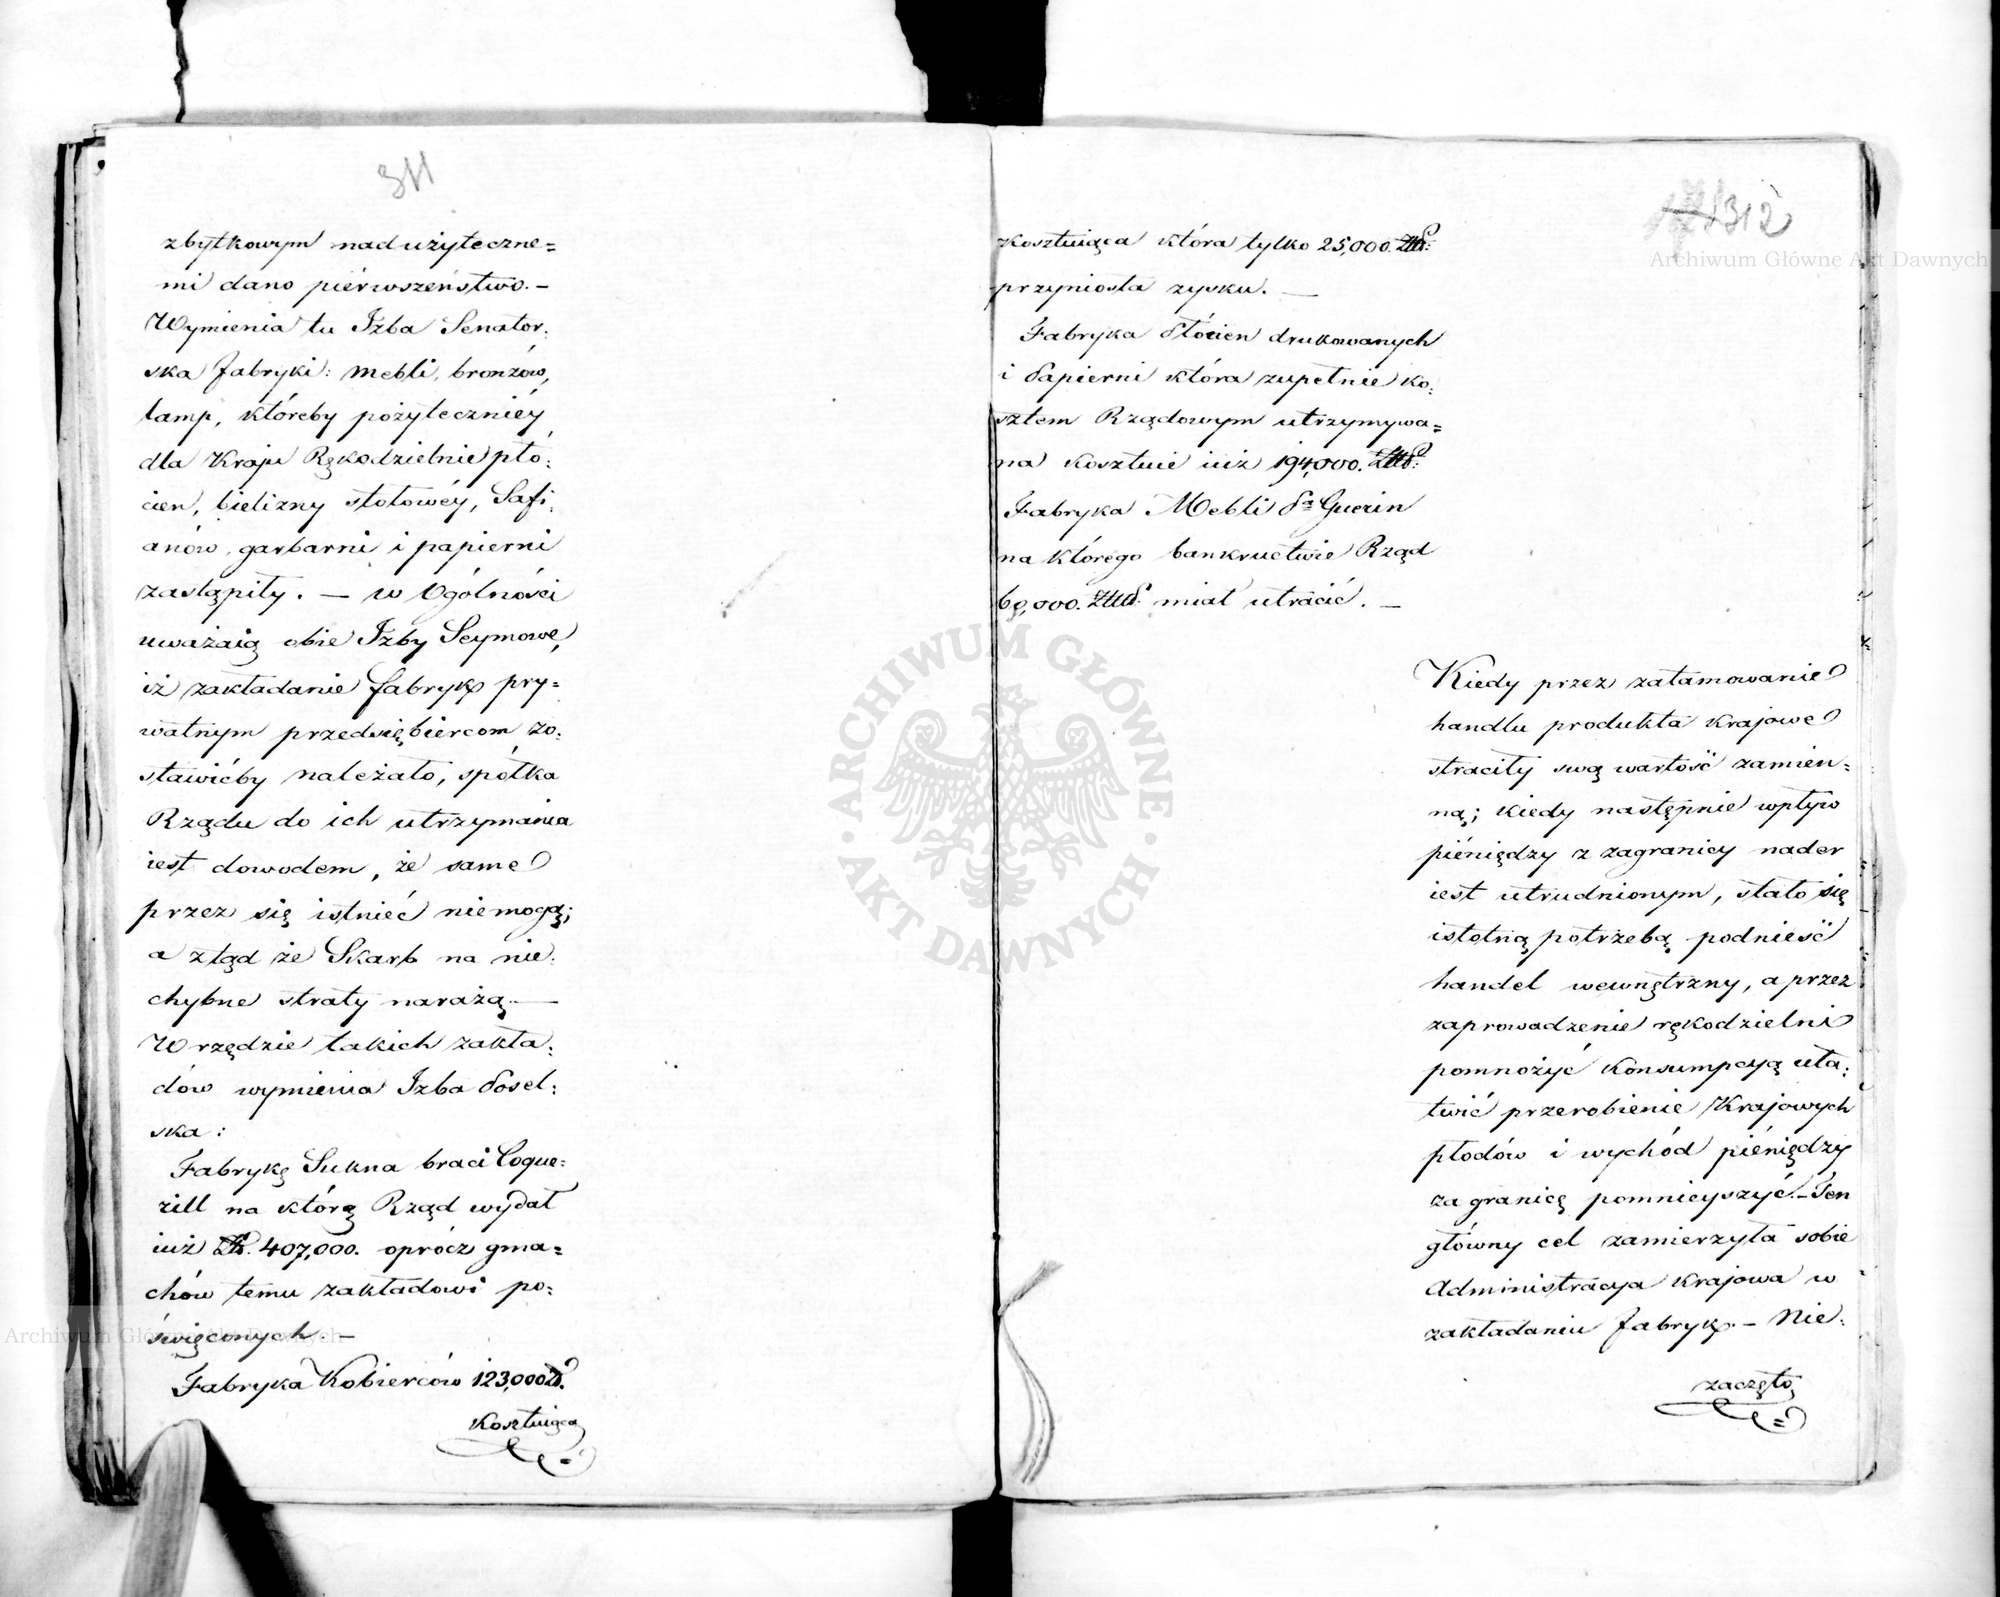 311
zbytkowym nad użyteczne=
mi dano pierwszeństwo. —
Wymienia tu Izba Senator:
ska fabryki: mebli, bronzów,
lamp, któreby pożyteczniéy
dla Kraju Rękodzielnie płó:
cien, bielizny stołowéy, Safi:
anów, garbarni i papierni
zastąpiły. — w Ogólności
uważaią obie Izby Seymowe,
iż zakładanie fabryk pry=
watnym przedsiębiercom zo:
stawićby należało, spółka
Rządu do ich utrzymania
iest dowodem, że same
przez się istnieć niemogą;
a ztąd że Skarb na nie:
chybne straty narażą. —
W rzędzie takich zakła:
dów wymienia Izba Posel:
ska:
Fabrykę Sukna braci Coque:
rill na którą Rząd wydał
iuż Zł. 407,000. oprócz gma=
chów temu zakładowi po:
święconych. —
Fabryka Kobierców 123,000 Zł.
kosztuiąca
312
kosztuiąca która tylko 25,000. Złł:
przyniosła zysku. —
Fabryka Płócien drukowanych
i Papierni która zupełnie ko:
sztem Rządowym utrzymywa=
na kosztuie iuż 194,000. Złł:
Fabryka Mebli Pa Guerin
na którego bankructwie Rząd
60,000. Złł. miał utracić. —
Kiedy przez zatamowanie
handlu produkta krajowe
straciły swą wartość zamien=
ną; kiedy następnie wpływ
piéniędzy z zagranicy nader
iest utrudnionym, stało się
istotną potrzebą podnieść
handel wewnętrzny, a przez
zaprowadzenie rękodzielni
pomnożyć Konsumpcyą uła:
twić przerobienie Krajowych
płodów i wychód piéniędzy
za granicę pomnieyszyć. — Ten
główny cel zamierzyła sobie
Administracya Krajowa w
zakładaniu fabryk. — Nie:
zaczęto
Archiwum Główne Akt Dawnych
Archiwum Główne Akt Dawnych
ARCHIWUM GŁÓWNE · AKT DAWNYCH ·